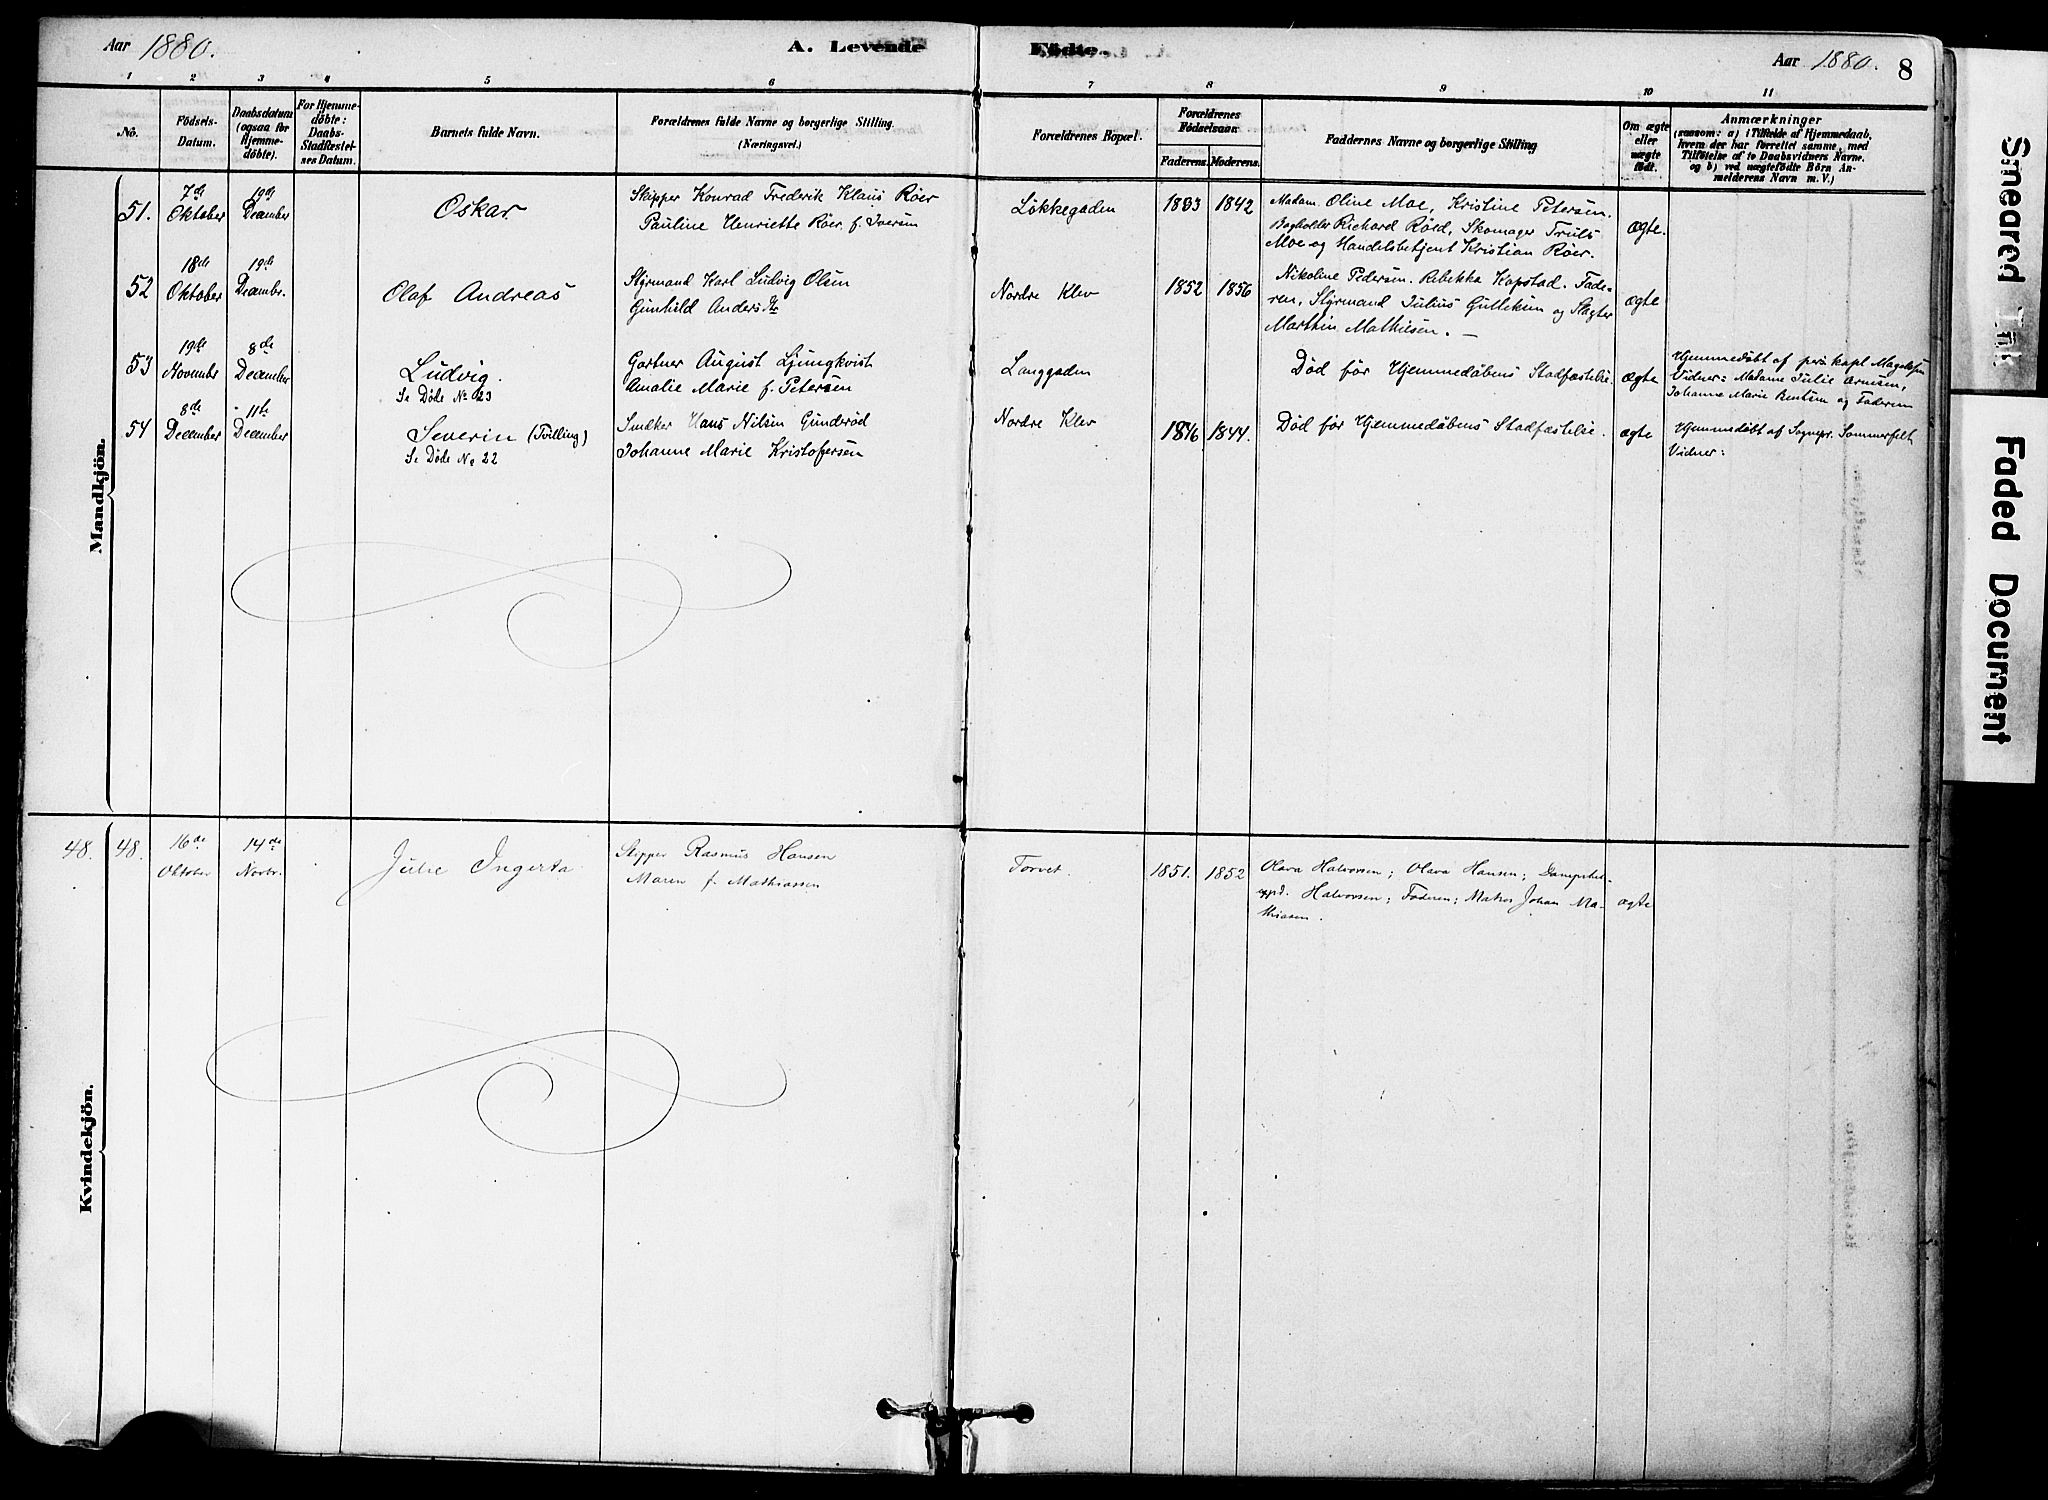 Aar 1880.
A. Levende Födte.
Aar 1880.
8
1 2 3 4 5 6 7 8 9 10 11
No.
Födsels-
Datum.
Daabsdatum
(ogsaa for
Hjemme-
döbte).
For Hjemme-
döbte:
Daabs-
Stadfæstel-
ses Datum.
Barnets fulde Navn.
Forældrenes fulde Navne og borgerlige Stilling.
(Næringsvei.)
Forældrenes Bopæl.
Forældrenes
Födselsaar.
Faderens. Moderens.
Faddernes Navne og borgerlige Stilling
Om ægte
eller
uægte
födt.
Anmærkninger
(saasom: a) i Tilfælde af Hjemmedaab,
hvem der har forrettet samme, med
Tilföielse af to Daabsvidners Navne.
og b) ved uægtefödte Börn An-
melderens Navn m. V.)
Mandkjön.
51.
7de
Oktober
19de
December
Oskar
Skipper Konrad Frederik Klaus Röer
Pauline Henriette Röer f. Iversen
Løkkegaden
1833 1842
Madam. Oline Moe, Kristine Petersen.
Bogholder Richard Røed, Skomager Truls
Moe og Handelsbetjent Kristian Röer.
ægte.
52
18de
Oktober
19de
Decembr.
Olaf Andreas
Styrmand Karl Ludvig Olsen
Gunhild Anders Dr
Nordre Klev
1852 1856
Nikoline Pedersen. Rebekka Kopstad. Fade-
ren, Styrmand Julius Gulliksen og Slagter
Marthin Mathisen. —
ægte
53
19de
November
8de
December
Ludvig.
Se Døde No 23
Gartner August Ljungkvist
Amalie Marie f. Petersen
Langgaden
Død før Hjemmedøbens Stadfæstelse.
ægte
Hjemmedøbt af pers kapl Magelssen
Vidner: Madame Julie Arnesen,
Johanne Marie Bentsen og Faderen
54
8de
December
11te
December
Severin (Tvilling)
Se Døde No 22
Snekker Hans Nilsen Gunderød
Johanne Marie Kristofersen
Nordre Klev
1846 1844.
Død før Hjemmedøbens Stadfæstelse.
ægte
Hjemmedøbt af Sognepr. Sommerfelt
Vidner:
Kvindekjön.
48. 48.
16de
Oktober
14de
Novbr.
Julie Ingerta
Skipper Rasmus Hansen
Maren f. Mathiassen
Torvet.
1851. 1852
Olava Halvorsen; Olava Hansen;
Halvorsen; Faderen; Matros Johan Ma-
thiasen.
ægte
Smeared Ink
Faded Document